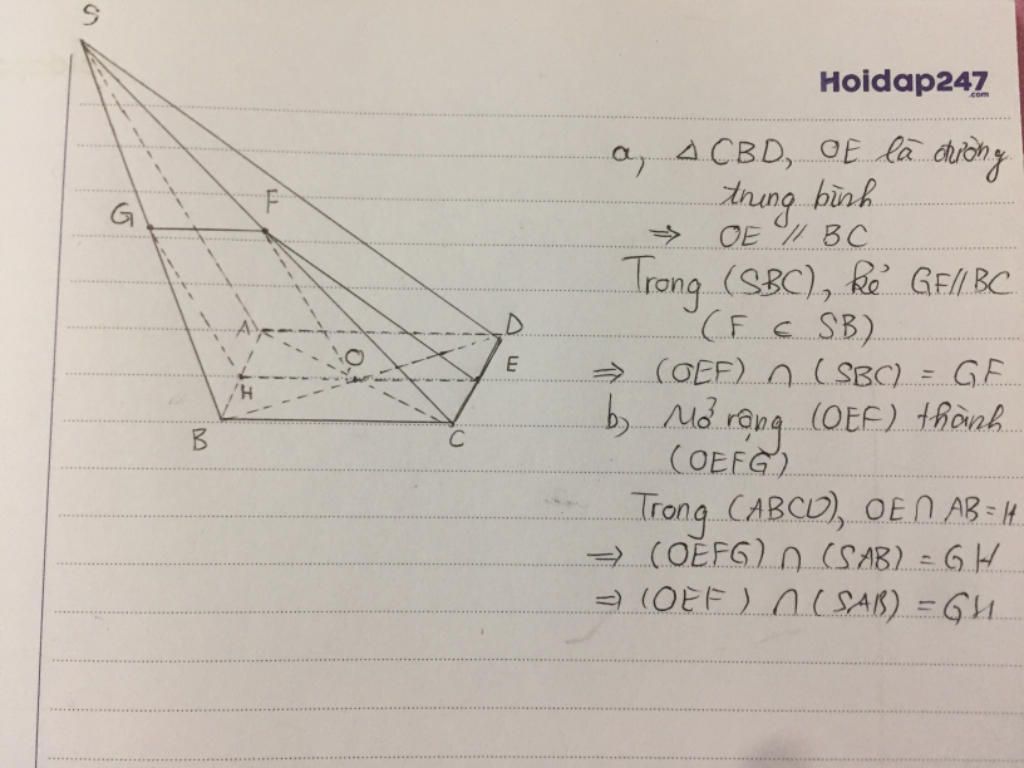 S
Hoidap247
.com
a, △ CBD, OE là đường
trung bình
⇒ OE // BC
Trong (SBC), kẻ GF // BC
(F ⊂ SB)
⇒ (OEF) ∩ (SBC) = GF
b, Mở rộng (OEF) thành
(OEFG)
Trong (ABCD), OE ∩ AB = H
⇒ (OEFG) ∩ (SAB) = GH
⇒ (OEF) ∩ (SAB) = GH
G
F
A
D
O
E
H
B
C